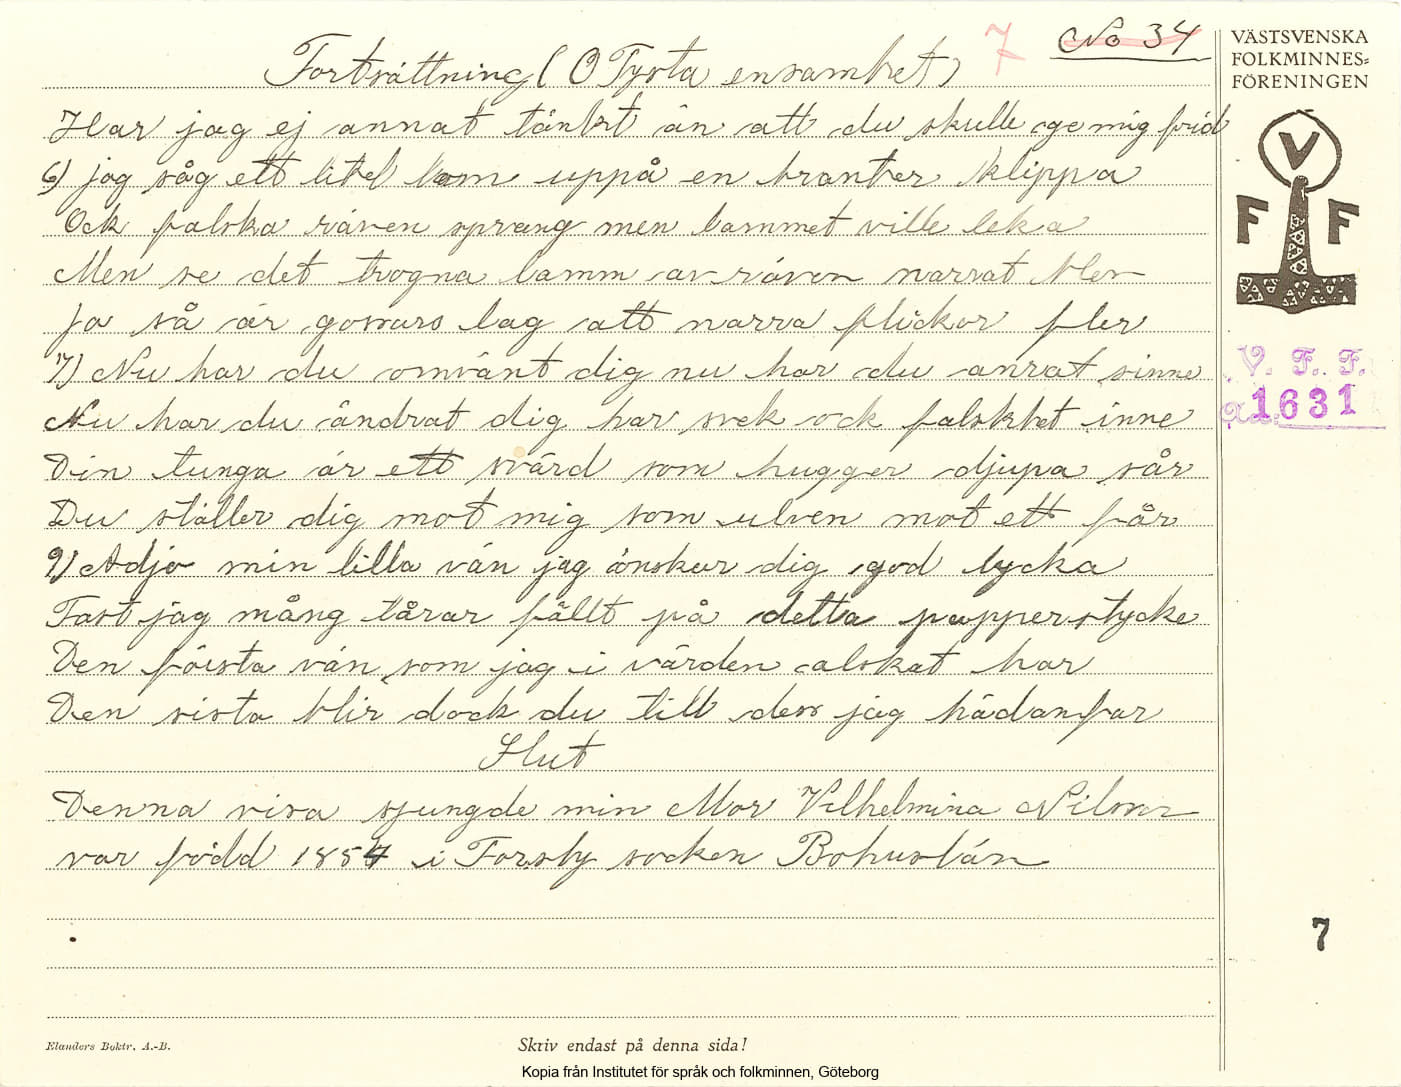 7 No 34
Fortsättning (O Tysta ensamhet)
Har jag ej annat tänkt än att du skulle ge mig frid
6) jag såg ett litet lam uppå en branter klippa
Ock falska räven sprang men lammet ville leka
Men se det trogna lamm av räven narrat blev
Ja så är gossars lag att narra flickor fler
7) Nu har du omvänt dig nu har du anrat sinne
Nu har du ändrat dig har svek ock falskhet inne
Din tunga är ett svärd som hugger djupa sår
Du ställer dig mot mig som ulven mot ett får
9) Adjo min lilla vän jag önskar dig god lycka
Fast jag mång tårar fällt på detta papperstycke
Den första vän som jag i värden alskat har
Den sista blir dock du till dess jag hädanfar
Slut
Denna visa sjungde min Mor Vilhelmina Nilsson
var född 1857 i Forsby socken Bohuslän
VÄSTSVENSKA
FOLKMINNES=
FÖRENINGEN
V
F F
V. F. F.
1631
7
Elanders Boktr. A.-B.
Skriv endast på denna sida!
Kopia från Institutet för språk och folkminnen, Göteborg